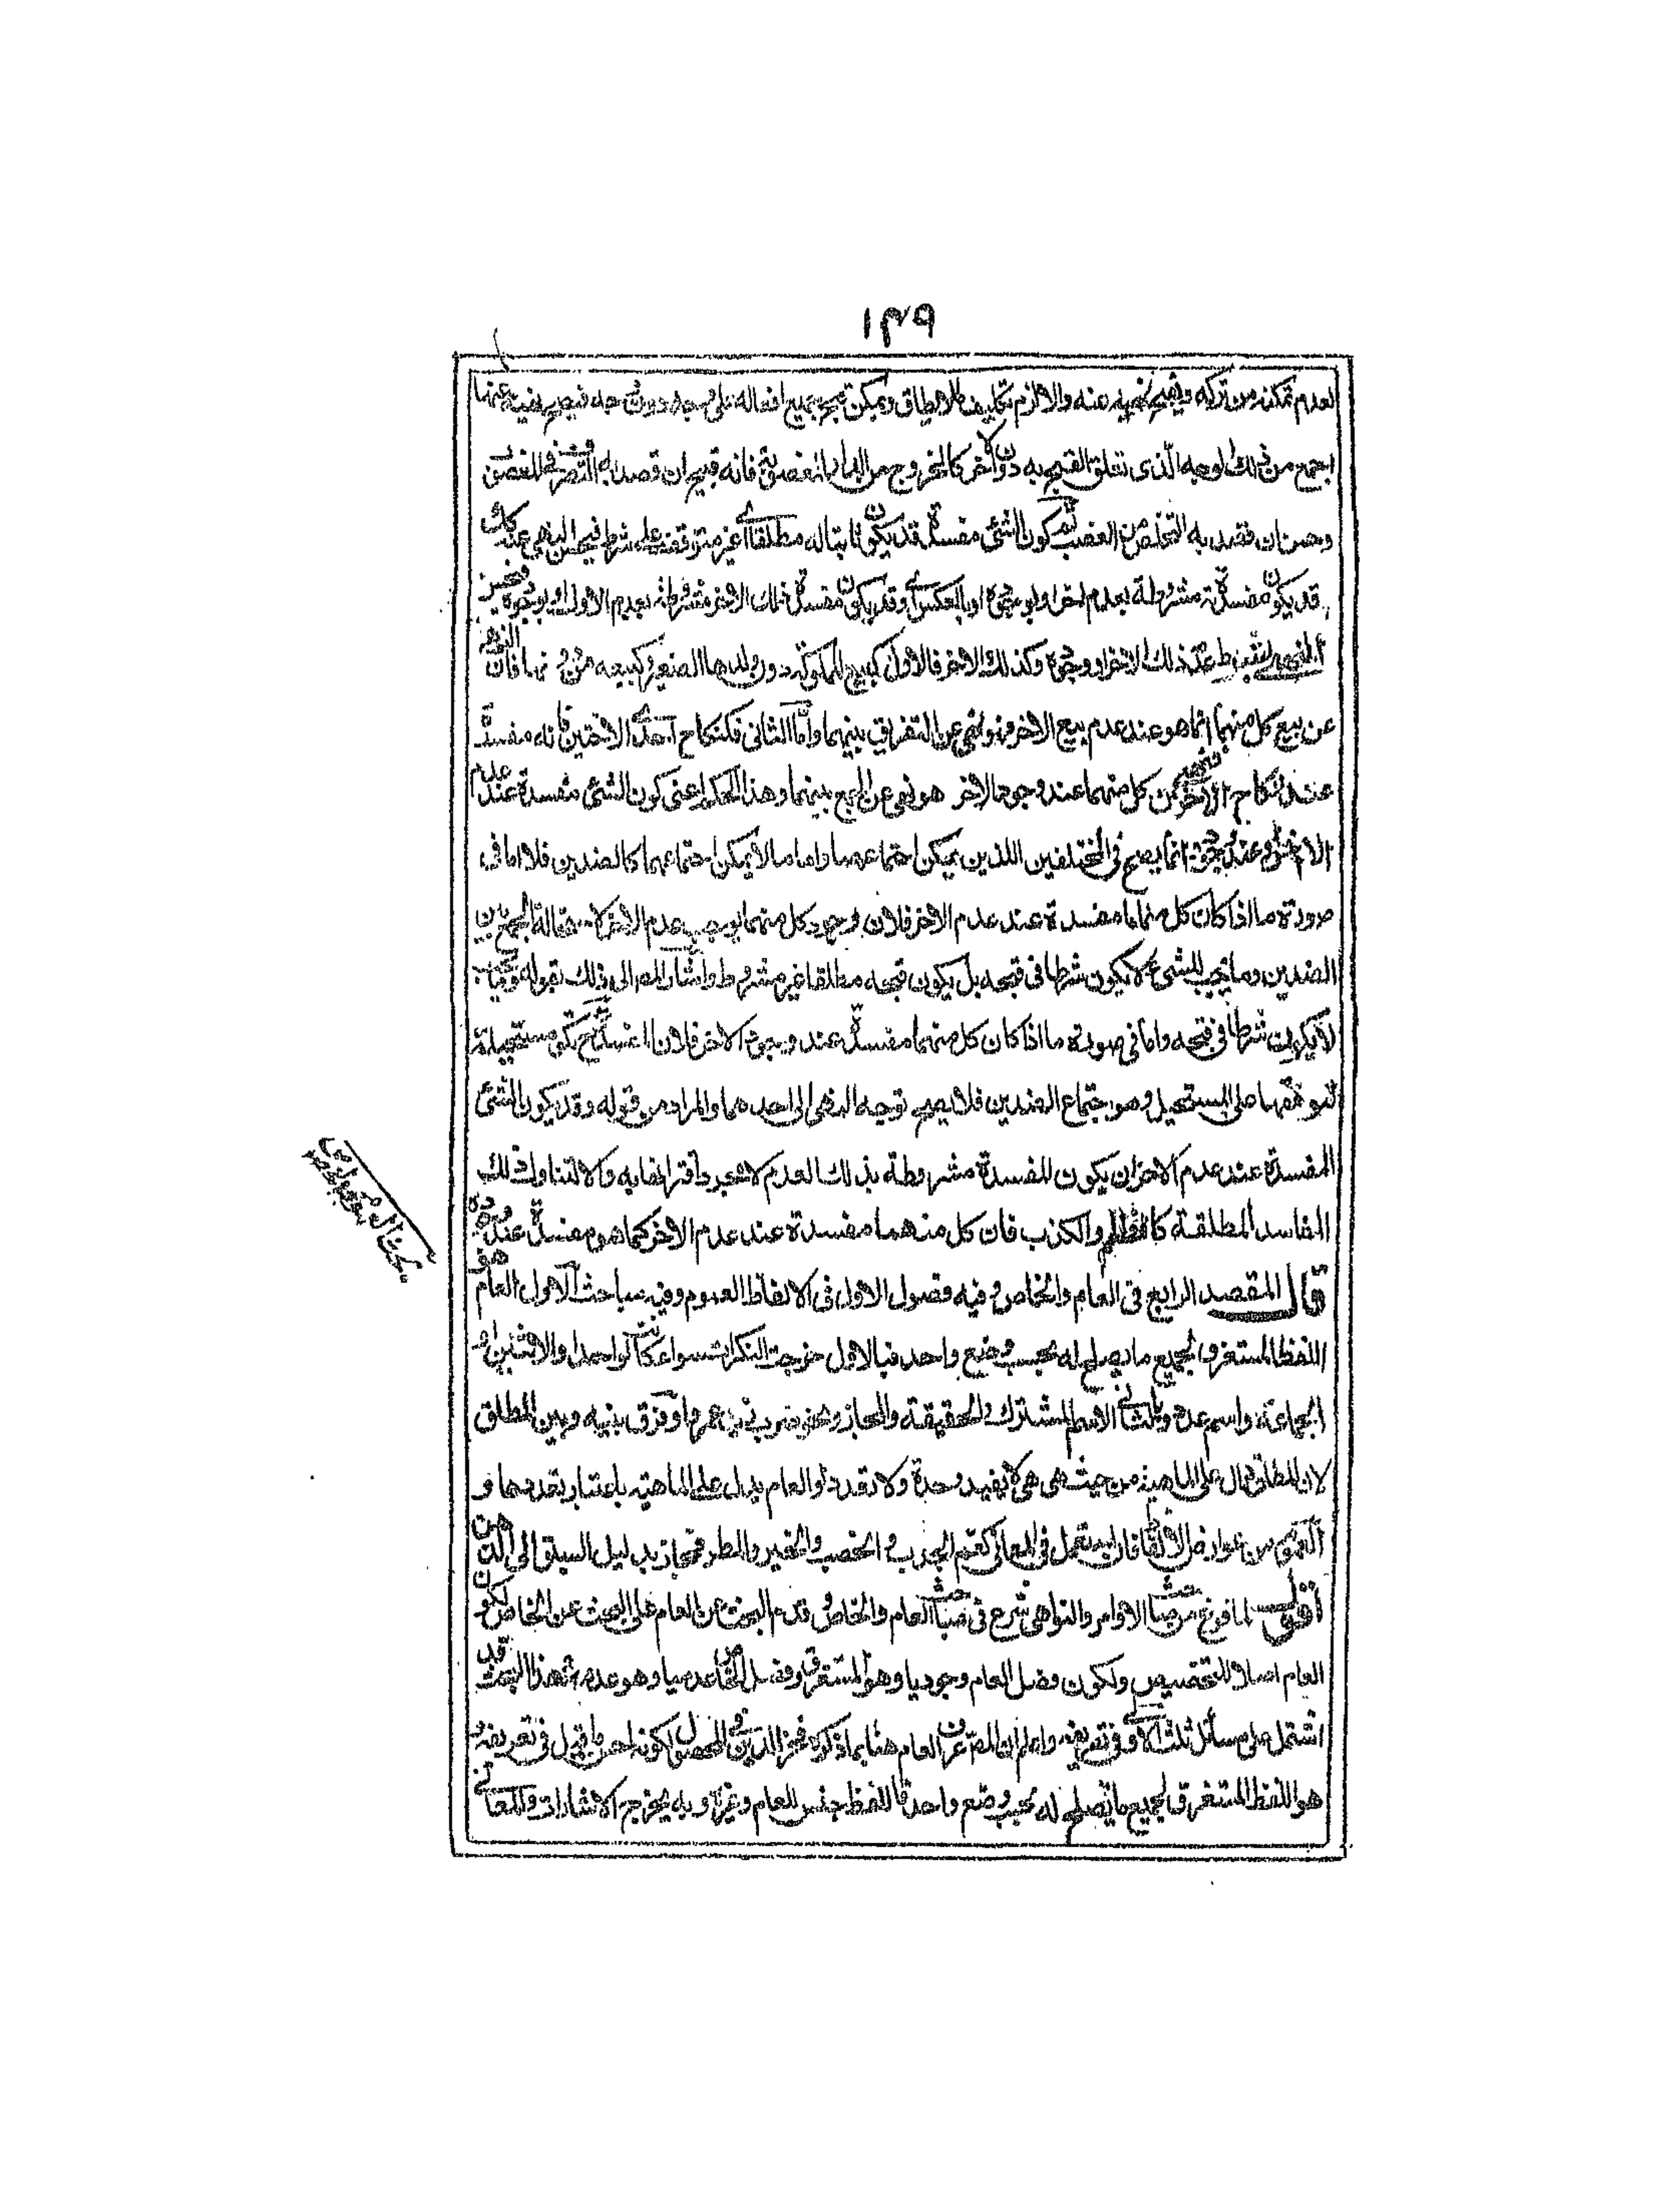 ١٣٩
لعدم تمكنه من تركه ويقبح نهيه عنه والا لزم تكليف ما لا يطاق ويمكن قبح جميع افعاله على وجه دون وجه فيصح نهيه عنها
اجمع من ذلك الوجه الذى تعلق القبح به دون الاخر كالخروج من الدار المغصوبة فانه قبيح ان قصد به التصرف فى الغصب
وحسن ان قصد به التخلص من الغصب ثم كون الشئ مفسدة قد يكون ثابتا له مطلقا اى غير متوقف على شرط فيحسن النهى عنه كك
قد يكون مفسدة مشروطة بعدم اخر او بوجوده او بالعكس اى وقد يكون مفسدة ذلك الاخر مشروطة بعدم الاول او بوجوده فيحسن
النهى بشرط عدم ذلك الاخر او وجوده وكذلك الاخر فالاول كبيع المملوكة دون ولدها الصغير وكبيعه من دونها فان النهى
عن بيع كل منهما انما هو عند عدم بيع الاخر فهو نهى عن التفريق بينهما واما الثانى فكنكاح احدى الاختين فانه مفسدة
عند نكاح الاخرى فنهيه عن كل منهما عند وجود الاخر هو نهى عن الجمع بينهما وهذا الحكم اعنى كون الشئ مفسدة عند عدم
الاخر او عند وجوده انما يصح فى المختلفين اللذين يمكن اجتماعهما واما ما لا يمكن اجتماعهما كالضدين فلا اما فى
صورة ما اذا كان كل منهما مفسدة عند عدم الاخر فلان وجود كل منهما يوجب عدم الاخر لاستحالة الجمع بين
الضدين وما يجب للشئ لا يكون شرطا فى قبحه بل يكون قبحه مطلقا غير مشروط واشار المص الى ذلك بقوله
لا يكون شرطا فى قبحه واما فى صورة ما اذا كان كل منهما مفسدة عند وجود الاخر فلان المفسدة ح تكون مستحيلة
لتوقفها على المستحيل وهو اجتماع الضدين فلا يصح توجيه النهى الى احدهما والمراد من قوله وقد يكون الشئ
المفسدة عند عدم الاخر ان يكون للمفسدة مشروطة بذلك العدم لا مجرد اقترانها به والا لتناول ذلك
المفاسد المطلقة كالظلم والكذب فان كل منهما مفسدة عند عدم الاخر كما هو مفسدة عند وجوده
قال المقصد الرابع فى العام والخاص وفيه فصول الاول فى الالفاظ العموم وفيه مباحث الاول العام هو
اللفظ المستغرق لجميع ما يصلح له بحسب وضع واحد فبالاول خرجت النكرات سواء كانت لواحد او الاثنين او
الجماعة واسم عدد وبالثانى الاسم المشترك والحقيقة والمجاز ونحو ضرب زيد عمروا وفرق بينه وبين المطلق
لان المطلق دال على الماهية من حيث هى هى لا يفيد وحدة ولا تعددا والعام يدل على الماهية باعتبار تعددها و
العموم من عوارض الالفاظ فان استعمل فى المعانى كعم الجدب و الخصب والخير والمطر فمجاز بدليل السبق الى الذهن
اقول لما فرغ من مباحث الاوامر والنواهى شرع فى مباحث العام والخاص وقدم البحث عن العام على البحث عن الخاص لكون
العام اصلا للتخصيص ولكون فصل العام وجوديا وهو المستغرق وفصل الخاص عدميا وهو عدمه فهذا البحث قد
اشتمل على مسائل ثلث الاولى فى تعريفه واعلم ان المص عرف العام هنا بما ذكره فخر الدين فى المحصول لكونه احسن ما قيل فى تعريفه و
هو اللفظ المستغرق لجميع ما يصلح له بحسب وضع واحد فاللفظ جنس للعام وغيره وبه يخرج الاشارات والمعانى